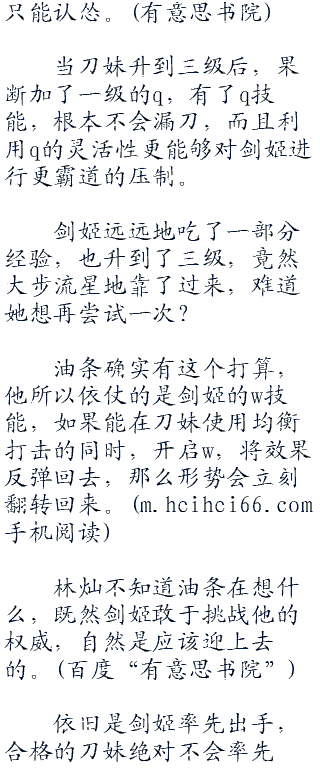 只能认怂。(有意思书院)
当刀妹升到三级后，果
断加了一级的q，有了q技
能，根本不会漏刀，而且利
用q的灵活性更能够对剑姬进
行更霸道的压制。
剑姬远远地吃了一部分
经验，也升到了三级，竟然
大步流星地靠了过来，难道
她想再尝试一次？
油条确实有这个打算，
他所以依仗的是剑姬的w技
能，如果能在刀妹使用均衡
打击的同时，开启w，将效果
反弹回去，那么形势会立刻
翻转回来。(m.hcihci66.com
手机阅读)
林灿不知道油条在想什
么，既然剑姬敢于挑战他的
权威，自然是应该迎上去
的。(百度“有意思书院”)
依旧是剑姬率先出手，
合格的刀妹绝对不会率先